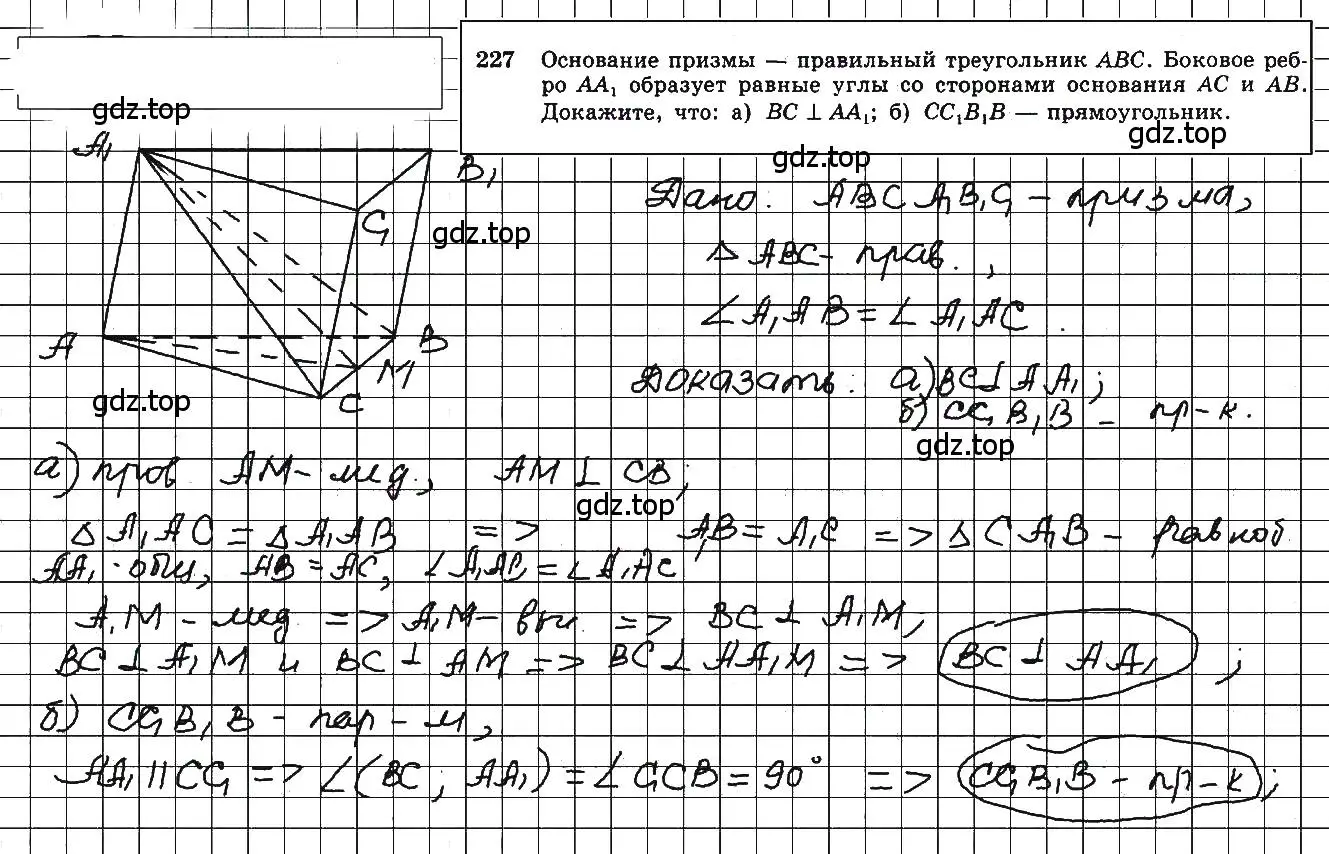 227 Основание призмы — правильный треугольник ABC. Боковое реб-
ро AA₁ образует равные углы со сторонами основания AC и AB.
Докажите, что: а) BC ⊥ AA₁; б) CC₁B₁B — прямоугольник.
gdz.top
gdz.top
gdz.top
A₁
B₁
C₁
gdz.top
A
B
M
C
gdz.top
Дано: ABCA₁B₁C₁ – призма,
△ ABC – прав.,
∠ A₁AB = ∠ A₁AC.
Доказать: а) BC ⊥ AA₁;
б) CC₁B₁B – пр-к.
gdz.top
а) пров AM – мед., AM ⊥ CB;
gdz.top
△ A₁AC = △ A₁AB => A₁B = A₁C => △ CA₁B – равноб
AA₁ - общ, AB = AC, ∠ A₁AB = ∠ A₁AC
A₁M – мед => A₁M – выс => BC ⊥ A₁M;
BC ⊥ A₁M и BC ⊥ AM => BC ⊥ AA₁M => BC ⊥ AA₁;
б) CC₁B₁B – пар-м,
AA₁ || CC₁ => ∠(BC; AA₁) = ∠C₁CB = 90° => CC₁B₁B – пр-к;